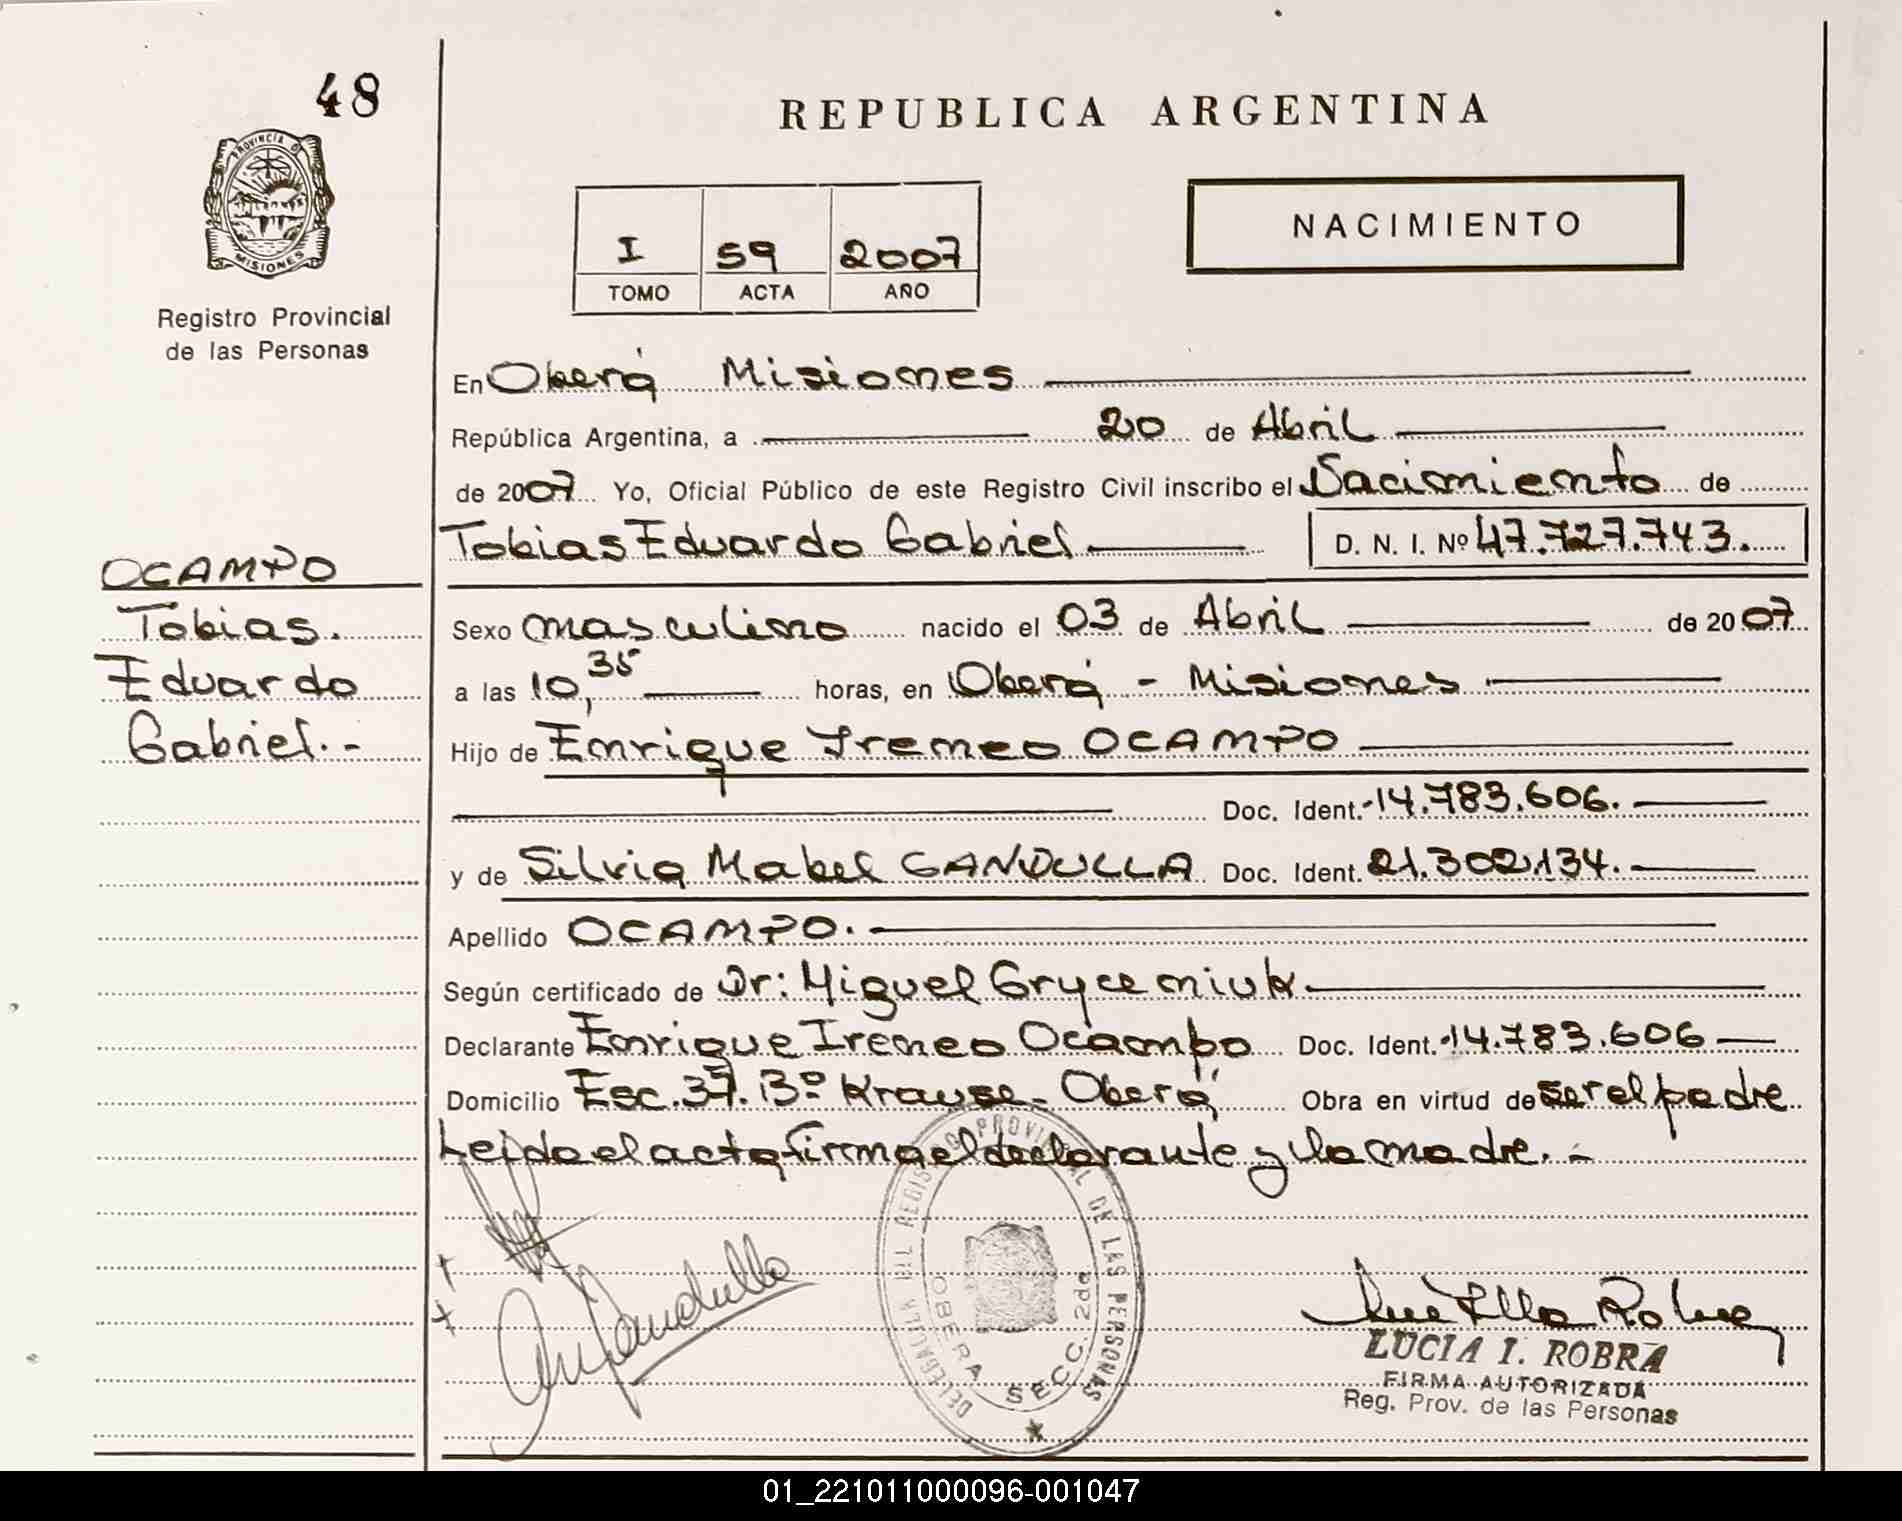 48
PROVINCIA DE
MISIONES
Registro Provincial
de las Personas
OCAMPO
Tobias.
Eduardo
Gabriel.-
REPUBLICA ARGENTINA
I 59 2007
TOMO ACTA AÑO
NACIMIENTO
En Oberá Misiones
República Argentina, a 20 de Abril
de 2007 Yo, Oficial Público de este Registro Civil inscribo el Nacimiento de
Tobias Eduardo Gabriel D. N. I. Nº 47.727.743.
Sexo masculino nacido el 03 de Abril de 2007
a las 10,35 horas, en Oberá - Misiones
Hijo de Enrique Ireneo OCAMPO
Doc. Ident. 14.783.606.
y de Silvia Mabel GANDULLA Doc. Ident. 21.302.134.
Apellido OCAMPO.
Según certificado de Dr: Miguel Gryceniuk
Declarante Enrique Ireneo Ocampo Doc. Ident. 14.783.606
Domicilio Esc. 37. Bº Krause - Oberá Obra en virtud de ser el padre
Leido el acta firma el declarante y la madre. -
DELEGACION DEL REGISTRO PROVINCIAL DE LAS PERSONAS
OBERA SECC. 2da
Gandulla
LUCIA I. ROBRA
FIRMA AUTORIZADA
Reg. Prov. de las Personas
01_221011000096-001047